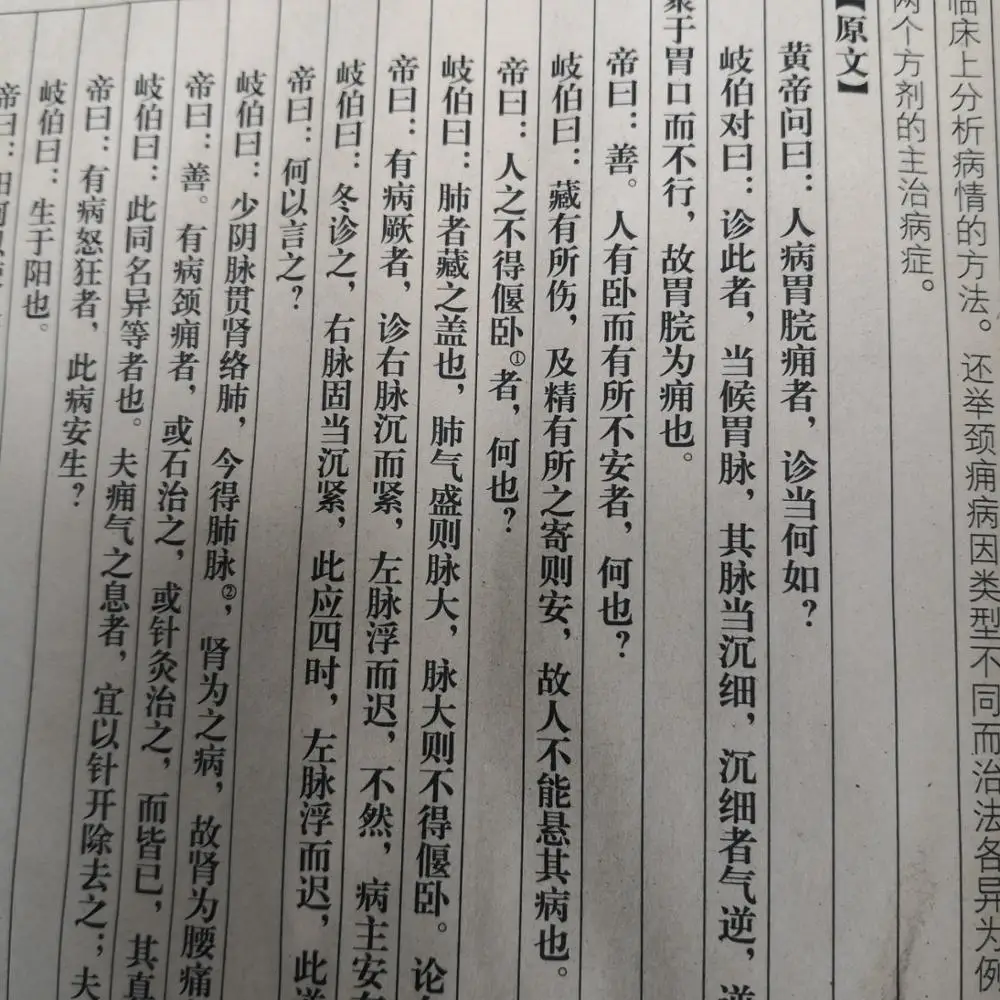 临床上分析病情的方法。还举颈痈病因类型不同而治法各异为例
两个方剂的主治病症。
【原文】
黄帝问曰：人病胃脘痈者，诊当何如？
岐伯对曰：诊此者，当候胃脉，其脉当沉细，沉细者气逆，逆
聚于胃口而不行，故胃脘为痈也。
帝曰：善。人有卧而有所不安者，何也？
岐伯曰：藏有所伤，及精有所之寄则安，故人不能悬其病也。
帝曰：人之不得偃卧①者，何也？
岐伯曰：肺者藏之盖也，肺气盛则脉大，脉大则不得偃卧。论
帝曰：有病厥者，诊右脉沉而紧，左脉浮而迟，不然，病主安
岐伯曰：冬诊之，右脉固当沉紧，此应四时，左脉浮而迟，此
帝曰：何以言之？
岐伯曰：少阴脉贯肾络肺，今得肺脉②，肾为之病，故肾为腰痛
帝曰：善。有病颈痈者，或石治之，或针灸治之，而皆已，其真
岐伯曰：此同名异等者也。夫痈气之息者，宜以针开除去之；夫
帝曰：有病怒狂者，此病安生？
岐伯曰：生于阳也。
帝曰：阳何以